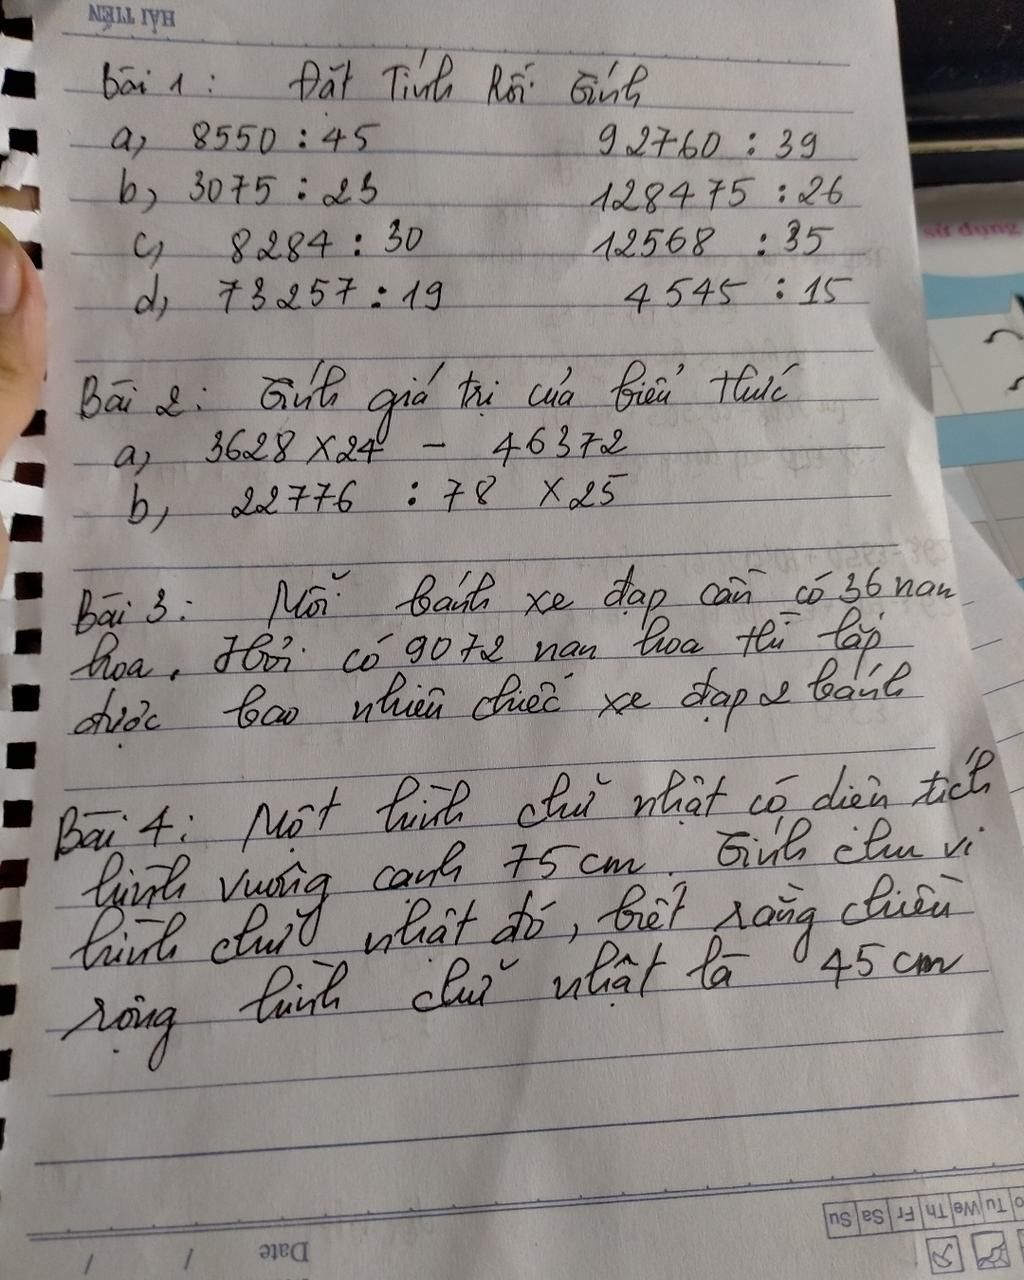 HẢI TIẾN
Bài 1: Đặt Tính Rồi Tính
a, 8550 : 45 92760 : 39
b, 3075 : 25 128475 : 26
c, 8284 : 30 12568 : 35
d, 73257 : 19 4545 : 15
Bài 2: Tính giá trị của biểu thức
a, 3628 x 24 - 46372
b, 22776 : 78 x 25
Bài 3: Mỗi bánh xe đạp cần có 36 nan
hoa. Hỏi có 9072 nan hoa thì lắp
được bao nhiêu chiếc xe đạp 2 bánh
Bài 4: Một hình chữ nhật có diên tích
hình vuông canh 75 cm. Tính chu vi
hình chữ nhật đó, biết rằng chiều
rộng hình chữ nhật là 45 cm
sử dụng
Date / /
Tu We Th Fr Sa Su